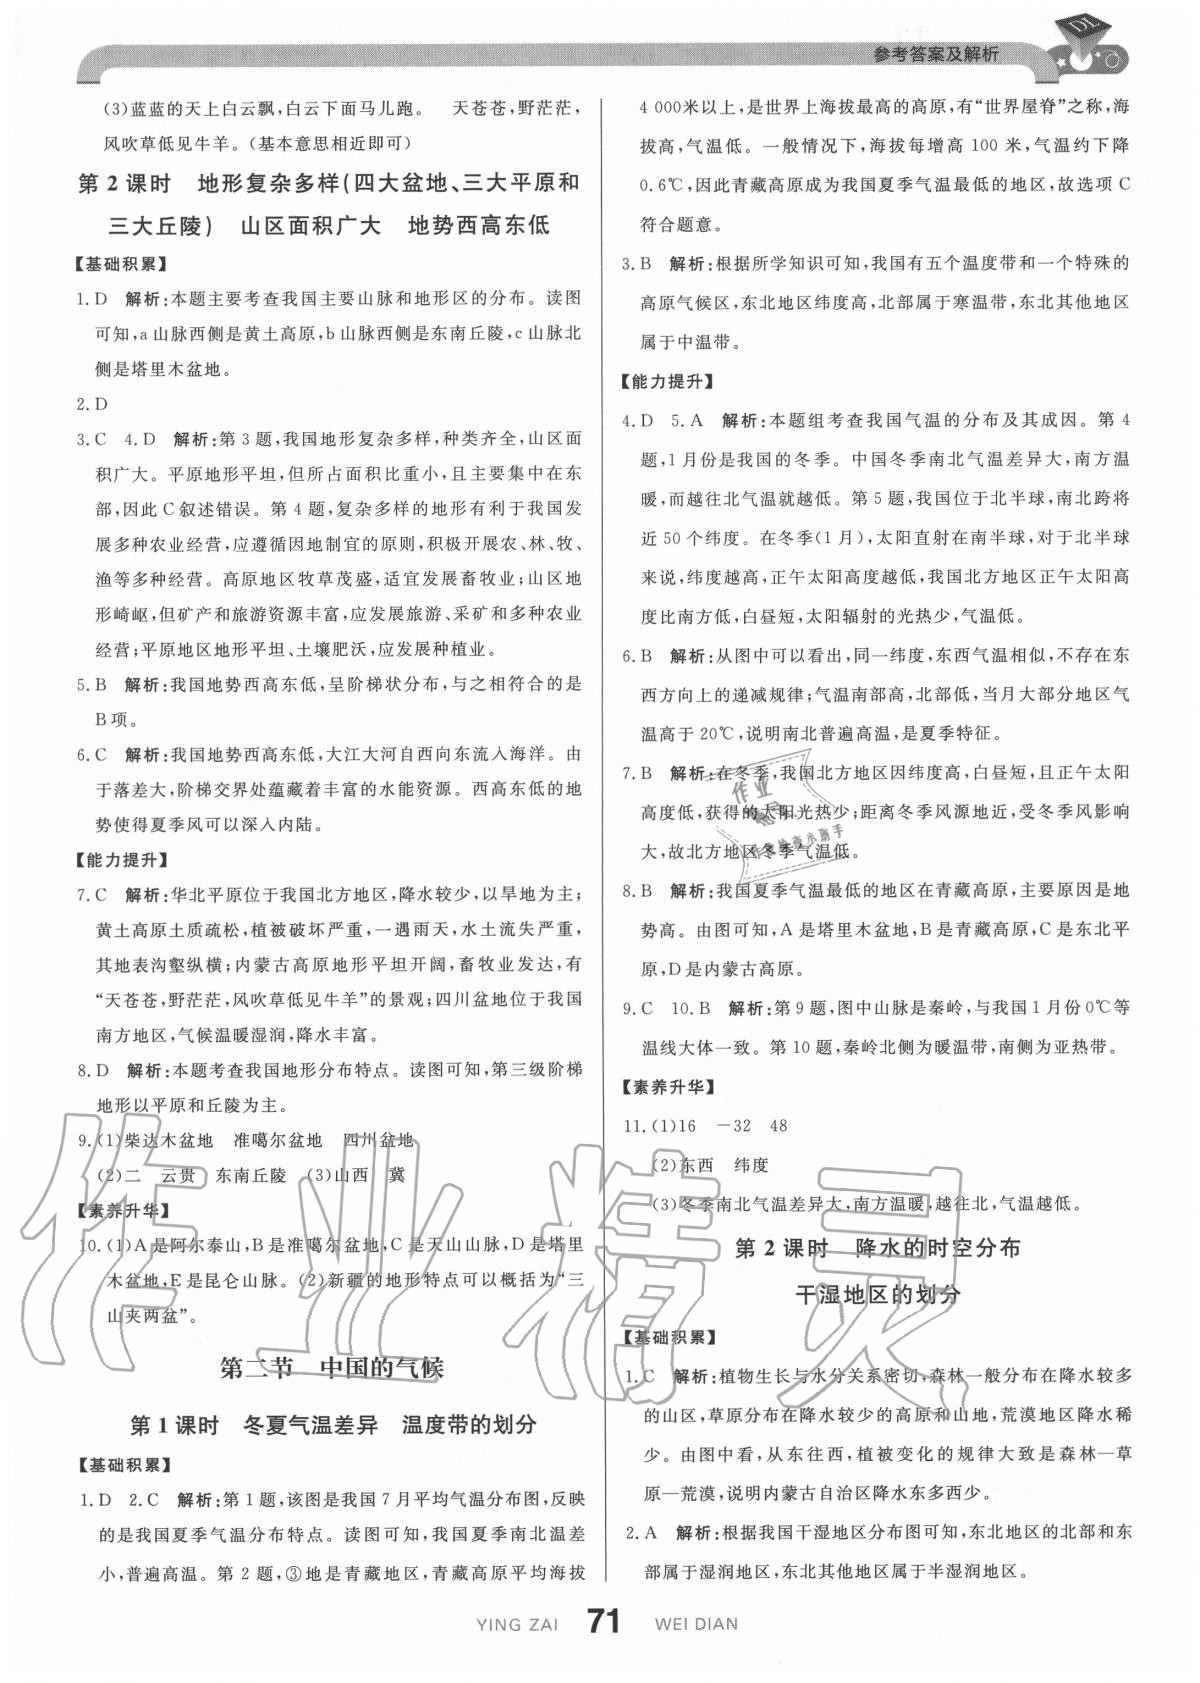 参考答案及解析
DL
(3)蓝蓝的天上白云飘,白云下面马儿跑。 天苍苍,野茫茫,
风吹草低见牛羊。(基本意思相近即可)
第2课时 地形复杂多样(四大盆地、三大平原和
三大丘陵) 山区面积广大 地势西高东低
【基础积累】
1. D 解析:本题主要考查我国主要山脉和地形区的分布。读图
可知,a山脉西侧是黄土高原,b山脉西侧是东南丘陵,c山脉北
侧是塔里木盆地。
2. D
3. C 4. D 解析:第3题,我国地形复杂多样,种类齐全,山区面
积广大。平原地形平坦,但所占面积比重小,且主要集中在东
部,因此C叙述错误。第4题,复杂多样的地形有利于我国发
展多种农业经营,应遵循因地制宜的原则,积极开展农、林、牧、
渔等多种经营。高原地区牧草茂盛,适宜发展畜牧业;山区地
形崎岖,但矿产和旅游资源丰富,应发展旅游、采矿和多种农业
经营;平原地区地形平坦、土壤肥沃,应发展种植业。
5. B 解析:我国地势西高东低,呈阶梯状分布,与之相符合的是
B项。
6. C 解析:我国地势西高东低,大江大河自西向东流入海洋。由
于落差大,阶梯交界处蕴藏着丰富的水能资源。西高东低的地
势使得夏季风可以深入内陆。
【能力提升】
7. C 解析:华北平原位于我国北方地区,降水较少,以旱地为主;
黄土高原土质疏松,植被破坏严重,一遇雨天,水土流失严重,
其地表沟壑纵横;内蒙古高原地形平坦开阔,畜牧业发达,有
“天苍苍,野茫茫,风吹草低见牛羊”的景观;四川盆地位于我国
南方地区,气候温暖湿润,降水丰富。
8. D 解析:本题考查我国地形分布特点。读图可知,第三级阶梯
地形以平原和丘陵为主。
9. (1)柴达木盆地 准噶尔盆地 四川盆地
(2)二 云贵 东南丘陵 (3)山西 冀
【素养升华】
10. (1)A是阿尔泰山,B是准噶尔盆地,C是天山山脉,D是塔里
木盆地,E是昆仑山脉。(2)新疆的地形特点可以概括为“三
山夹两盆”。
第二节 中国的气候
第1课时 冬夏气温差异 温度带的划分
【基础积累】
1. D 2. C 解析:第1题,该图是我国7月平均气温分布图,反映
的是我国夏季气温分布特点。读图可知,我国夏季南北温差
小,普遍高温。第2题,③地是青藏地区,青藏高原平均海拔
4 000米以上,是世界上海拔最高的高原,有“世界屋脊”之称,海
拔高,气温低。一般情况下,海拔每增高100米,气温约下降
0.6℃,因此青藏高原成为我国夏季气温最低的地区,故选项C
符合题意。
3. B 解析:根据所学知识可知,我国有五个温度带和一个特殊的
高原气候区,东北地区纬度高,北部属于寒温带,东北其他地区
属于中温带。
【能力提升】
4. D 5. A 解析:本题组考查我国气温的分布及其成因。第4
题,1月份是我国的冬季。中国冬季南北气温差异大,南方温
暖,而越往北气温就越低。第5题,我国位于北半球,南北跨将
近50个纬度。在冬季(1月),太阳直射在南半球,对于北半球
来说,纬度越高,正午太阳高度越低,我国北方地区正午太阳高
度比南方低,白昼短,太阳辐射的光热少,气温低。
6. B 解析:从图中可以看出,同一纬度,东西气温相似,不存在东
西方向上的递减规律;气温南部高,北部低,当月大部分地区气
温高于20℃,说明南北普遍高温,是夏季特征。
7. B 解析:在冬季,我国北方地区因纬度高,白昼短,且正午太阳
高度低,获得的太阳光热少;距离冬季风源地近,受冬季风影响
大,故北方地区冬季气温低。
8. B 解析:我国夏季气温最低的地区在青藏高原,主要原因是地
势高。由图可知,A是塔里木盆地,B是青藏高原,C是东北平
原,D是内蒙古高原。
9. C 10. B 解析:第9题,图中山脉是秦岭,与我国1月份0℃等
温线大体一致。第10题,秦岭北侧为暖温带,南侧为亚热带。
【素养升华】
11. (1)16 －32 48
(2)东西 纬度
(3)冬季南北气温差异大,南方温暖,越往北,气温越低。
第2课时 降水的时空分布
干湿地区的划分
【基础积累】
1. C 解析:植物生长与水分关系密切,森林一般分布在降水较多
的山区,草原分布在降水较少的高原和山地,荒漠地区降水稀
少。由图中看,从东往西,植被变化的规律大致是森林—草
原—荒漠,说明内蒙古自治区降水东多西少。
2. A 解析:根据我国干湿地区分布图可知,东北地区的北部和东
部属于湿润地区,东北其他地区属于半湿润地区。
作业精灵
YING ZAI 71 WEI DIAN